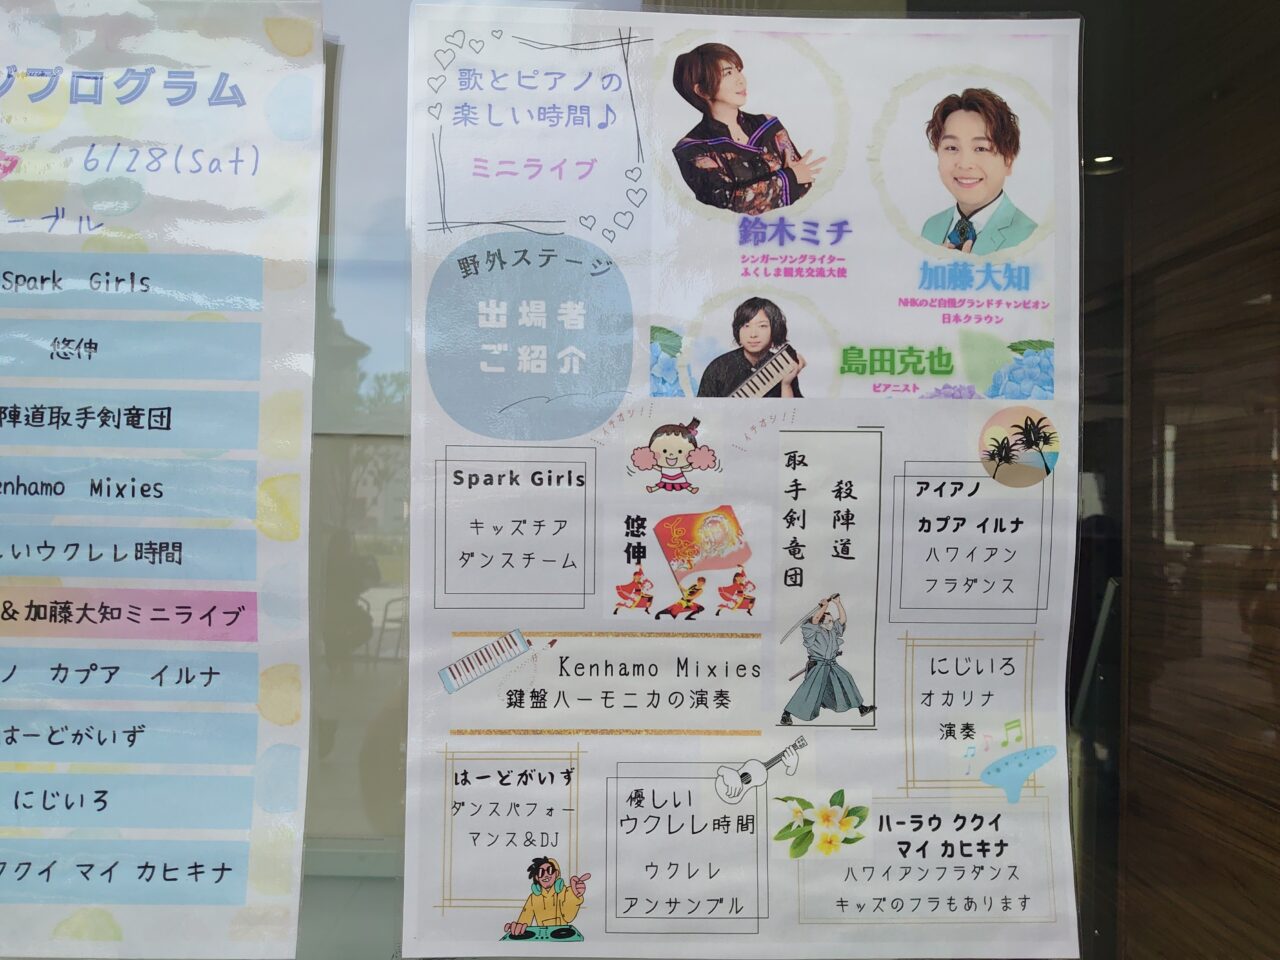 ジプログラム
6/28(Sat)
ーブル
Spark Girls
悠伸
陣道取手剣竜団
enhamo Mixies
しいウクレレ時間
&加藤大知ミニライブ
ノ カプア イルナ
はーどがいず
にじいろ
ククイ マイ カヒキナ
歌とピアノの
楽しい時間♪
ミニライブ
鈴木ミチ
シンガーソングライター
ふくしま観光交流大使
加藤大知
NHKのど自慢グランドチャンピオン
日本クラウン
島田克也
ピアニスト
野外ステージ
出場者
ご紹介
イチオシ!
イチオシ!
Spark Girls
キッズチア
ダンスチーム
悠伸
殺陣道
取手剣竜団
アイアノ
カプア イルナ
ハワイアン
フラダンス
Kenhamo Mixies
鍵盤ハーモニカの演奏
にじいろ
オカリナ
演奏
はーどがいず
ダンスパフォー
マンス&DJ
優しい
ウクレレ時間
ウクレレ
アンサンブル
ハーラウ ククイ
マイ カヒキナ
ハワイアンフラダンス
キッズのフラもあります